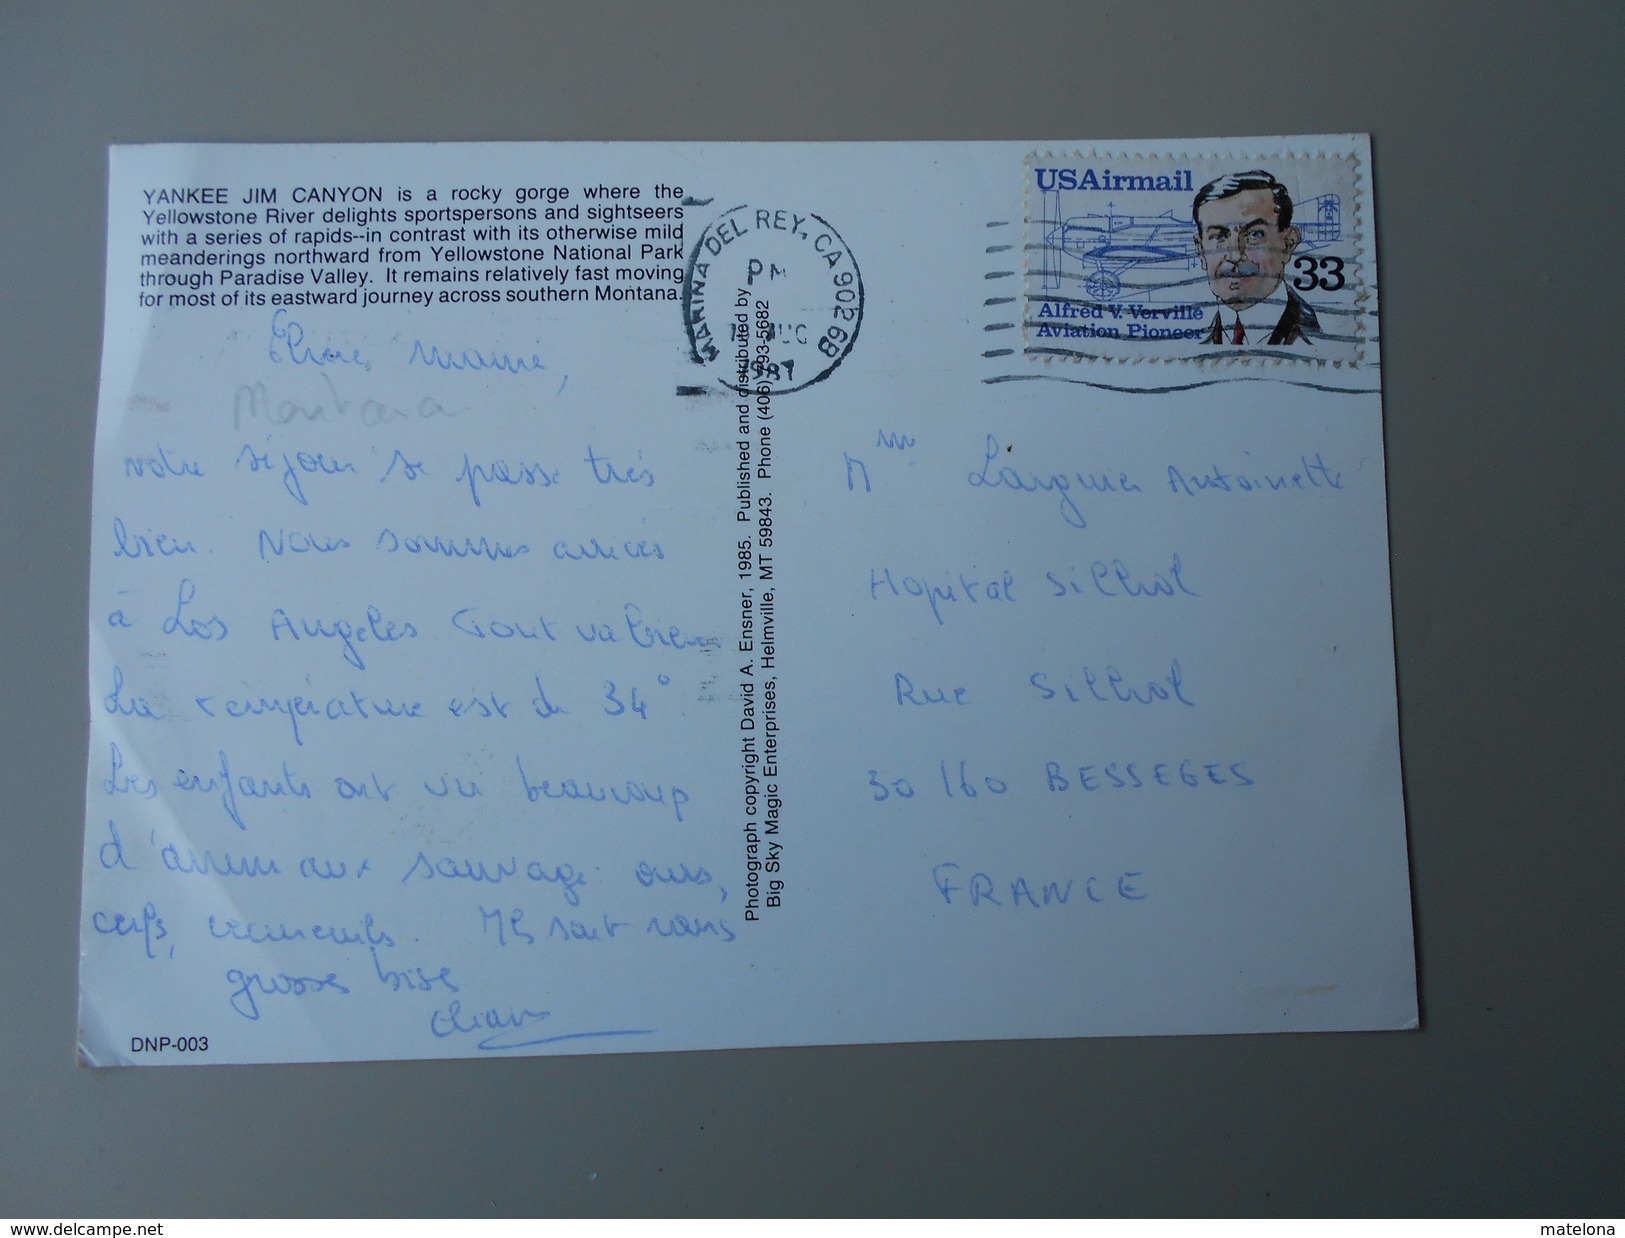 YANKEE JIM CANYON is a rocky gorge where the
Yellowstone River delights sportspersons and sightseers
with a series of rapids--in contrast with its otherwise mild
meanderings northward from Yellowstone National Park
through Paradise Valley. It remains relatively fast moving
for most of its eastward journey across southern Montana.
Montana
votre séjour se passe très
bien. Nous sommes arrivés
à Los Angeles. Tout va bien
La température est de 34°.
Les enfants ont vu beaucoup
d'animaux sauvage. ours,
cerfs, Ils sont ravis
grosses bises
DNP-003
Photograph copyright David A. Ensner, 1985. Published and distributed by
Big Sky Magic Enterprises, Helmville, MT 59843. Phone (406) 793-5682
MARINA DEL REY, CA 90268
PM
1987
USAirmail
33
Alfred V. Verville
Aviation Pioneer
Mme Larguier Antoinette
Hopital Silhol
Rue Silhol
30 160 BESSEGES
FRANCE
www.delcampe.net
matelona